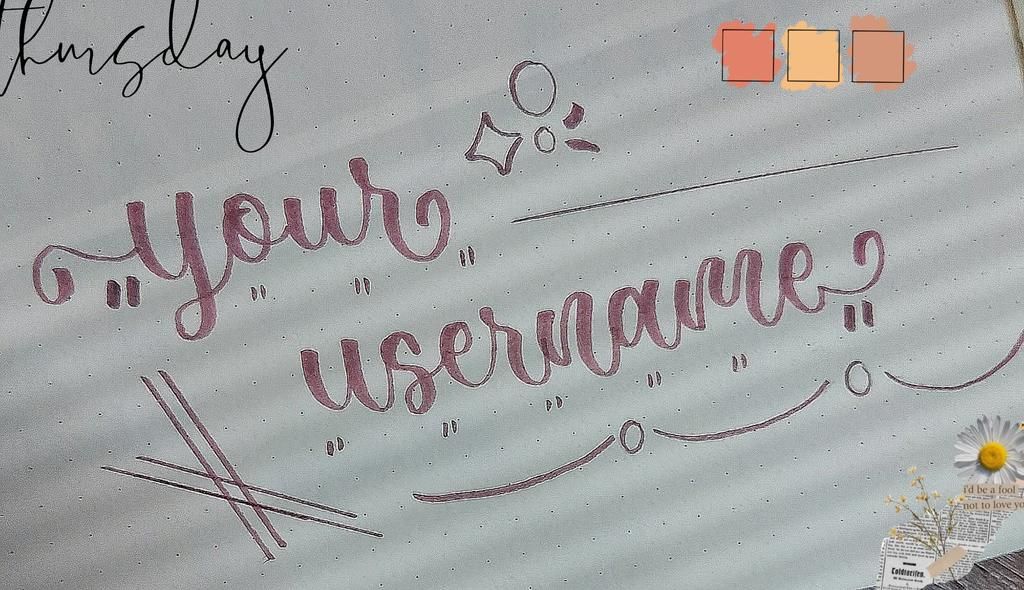 thursday
your
username
i'd be a fool
not to love yo
Coldtarifen.